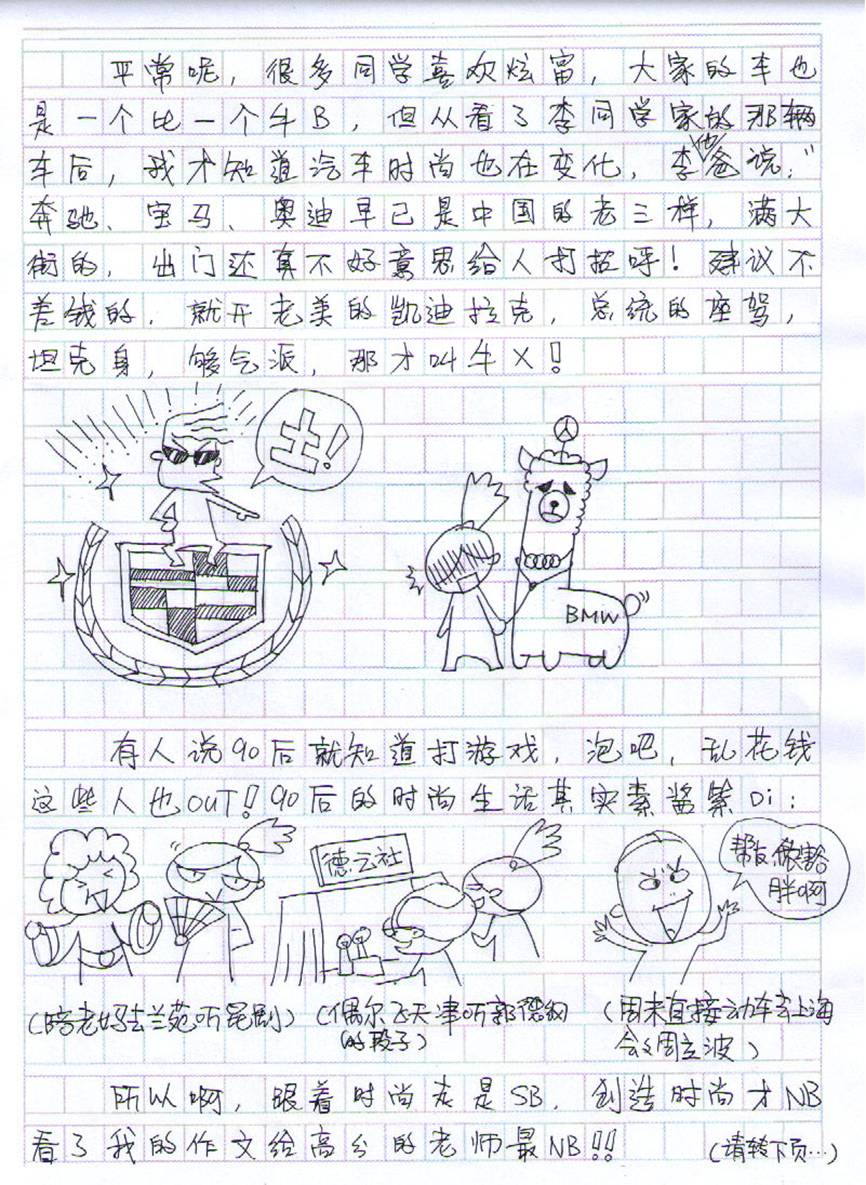 平常呢，很多同学喜欢炫富，大家的车也
是一个比一个牛B，但从看了李同学家的那辆
车后，我才知道汽车时尚也在变化，李他爸说："
奔驰、宝马、奥迪早已是中国的老三样，满大
街的，出门还真不好意思给人打招呼！建议不
差钱的，就开老美的凯迪拉克，总统的座驾，
坦克身，够气派，那才叫牛X！
土！
BMW
有人说90后就知道打游戏，泡吧，乱花钱
这些人也OUT！90后的时尚生活其实素酱紫Di：
德云社
帮友
胖啊
（陪老妈去兰苑听昆剧）
（偶尔飞天津听郭德纲
的段子）
（周末直接动车去上海
会会周立波）
所以啊，跟着时尚走是SB，创造时尚才NB
看了我的作文给高分的老师最NB！！
（请转下页…）